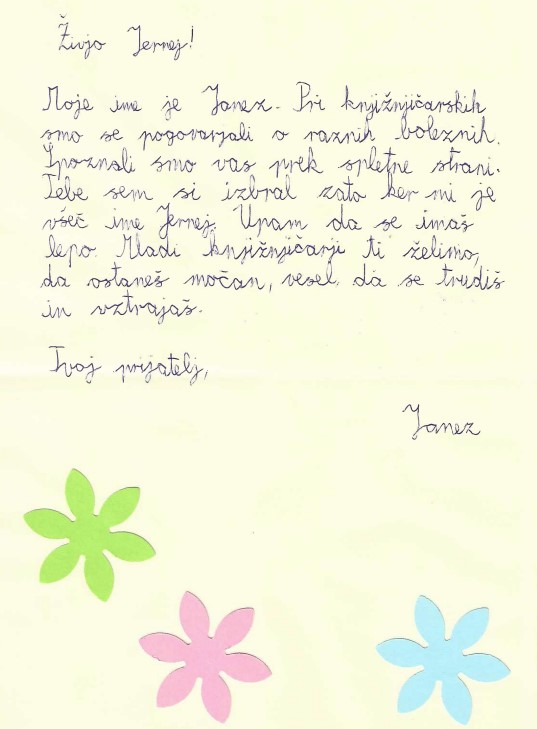 Živjo Jernej!
Moje ime je Janez. Pri knjižničarskih
smo se pogovarjali o raznih boleznih.
Spoznali smo vas prek spletne strani.
Tebe sem si izbral zato ker mi je
všeč ime Jernej. Upam da se imaš
lepo. Mladi knjižničarji ti želimo,
da ostaneš močan, vesel, da se trudiš
in vztrajaš.
Tvoj prijatelj,
Janez